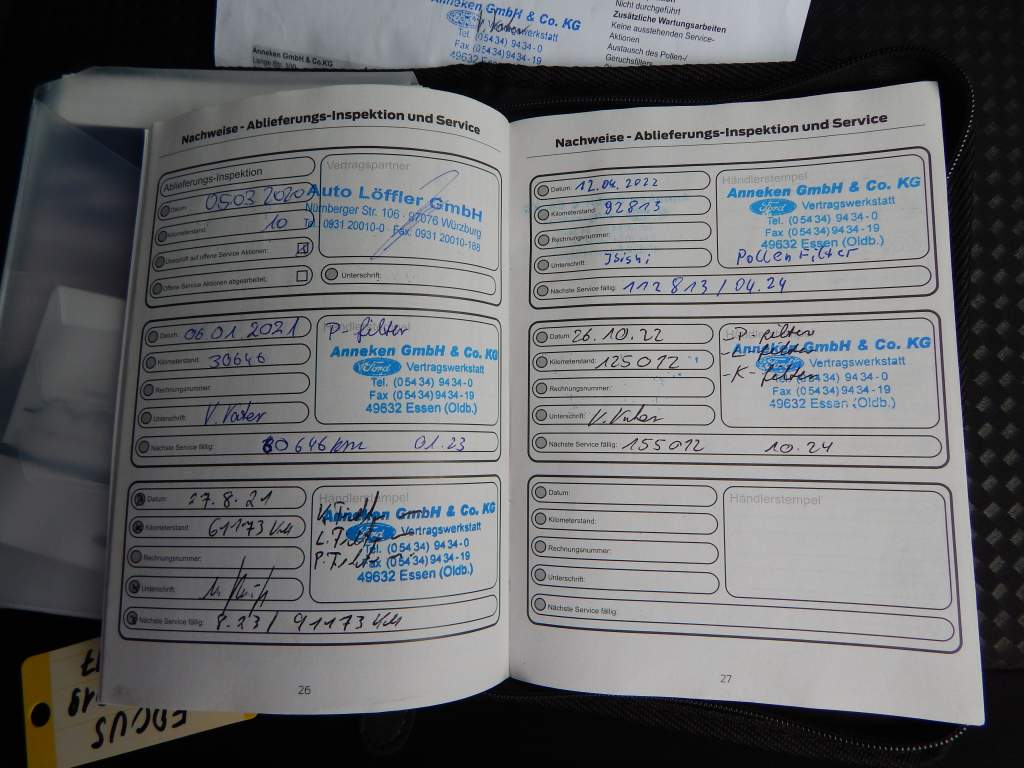 Anneken GmbH & Co. KG
Vertragswerkstatt
Tel. (05434) 9434-0
Fax (05434) 9434-19
Anneken GmbH & Co.KG
Nicht durchgeführt
Zusätzliche Wartungsarbeiten
Keine ausstehenden Service-
Aktionen
Austausch des Pollen-/
Geruchsfilters
Nachweise - Ablieferungs-Inspektion und Service
Ablieferungs-Inspektion
Datum: 05.03 2020
Kilometerstand: 10
Überprüft auf offene Service Aktionen:
Offene Service Aktionen abgearbeitet:
Vertragspartner
Auto Löffler GmbH
Nürnberger Str. 106 · 97076 Würzburg
Tel. 0931 20010-0 · Fax. 0931 20010-188
Unterschrift:
Datum: 06.01.2021
Kilometerstand: 30646
Rechnungsnummer:
Unterschrift: V. Vater
P-filter
Anneken GmbH & Co. KG
Ford Vertragswerkstatt
Tel. (05434) 9434-0
Fax (05434) 9434-19
49632 Essen (Oldb.)
Nächste Service fällig: 60646 km 01.23
Datum: 27.8.21
Kilometerstand: 61173 KM
Rechnungsnummer:
Unterschrift:
Händlerstempel
Anneken GmbH & Co. KG
Vertragswerkstatt
Tel. (05434) 9434-0
Fax (05434) 9434-19
49632 Essen (Oldb.)
Nächste Service fällig: 8.23 / 91173 KM
26
Nachweise - Ablieferungs-Inspektion und Service
Datum: 12.04.2022
Kilometerstand: 92813
Rechnungsnummer:
Unterschrift:
Händlerstempel
Anneken GmbH & Co. KG
Ford Vertragswerkstatt
Tel. (05434) 9434-0
Fax (05434) 9434-19
49632 Essen (Oldb.)
Pollen Filter
Nächste Service fällig: 112813 / 04.24
Datum: 26.10.22
Kilometerstand: 125012
Rechnungsnummer:
Unterschrift: V. Vater
-P-filter
-K-filter
Anneken GmbH & Co. KG
Vertragswerkstatt
Tel. (05434) 9434-0
Fax (05434) 9434-19
49632 Essen (Oldb.)
Nächste Service fällig: 155012 10.24
Datum:
Kilometerstand:
Rechnungsnummer:
Unterschrift:
Händlerstempel
Nächste Service fällig:
27
FOCUS